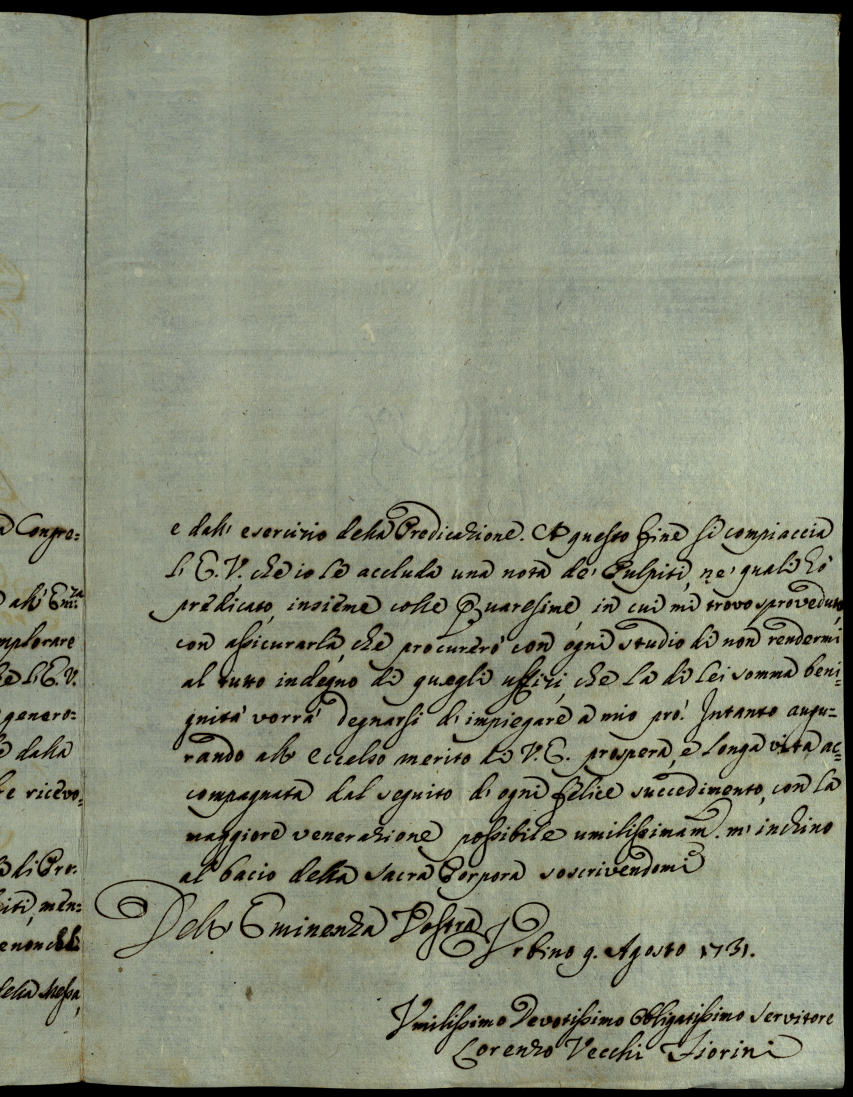 a Congre=
all' Em.za
mplorare
he l'E. V.
genero=
e dalla
re ricevo,
di Pre=
iti, men=
e non
della Messa,
e dall' esercizio della Predicazione. A questo fine si compiaccia
l' E. V. che io le accluda una nota de' Pulpiti, ne' quali hò
predicato, insieme colle Quaresime in cui mi trovo sproveduto,
con assicurarla, che procurerò con ogni studio di non rendermi
al tutto indegno di quegli uffizi, che la di lei somma beni=
gnità vorrà degnarsi d' impiegare a mio prò. Intanto augu=
rando all' eccelso merito di V. E. prospera, e longa vita ac=
compagnata dal seguito di ogni felice succedimento, con la
maggiore venerazione possibile umilissimam. m' inchino
al bacio della Sacra Porpora soscrivendomi
Dell' Eminenza Vostra
Urbino 9. Agosto 1731.
Umilissimo Devotissimo Obligatissimo Servitore
Lorenzo Vecchi Fiorini